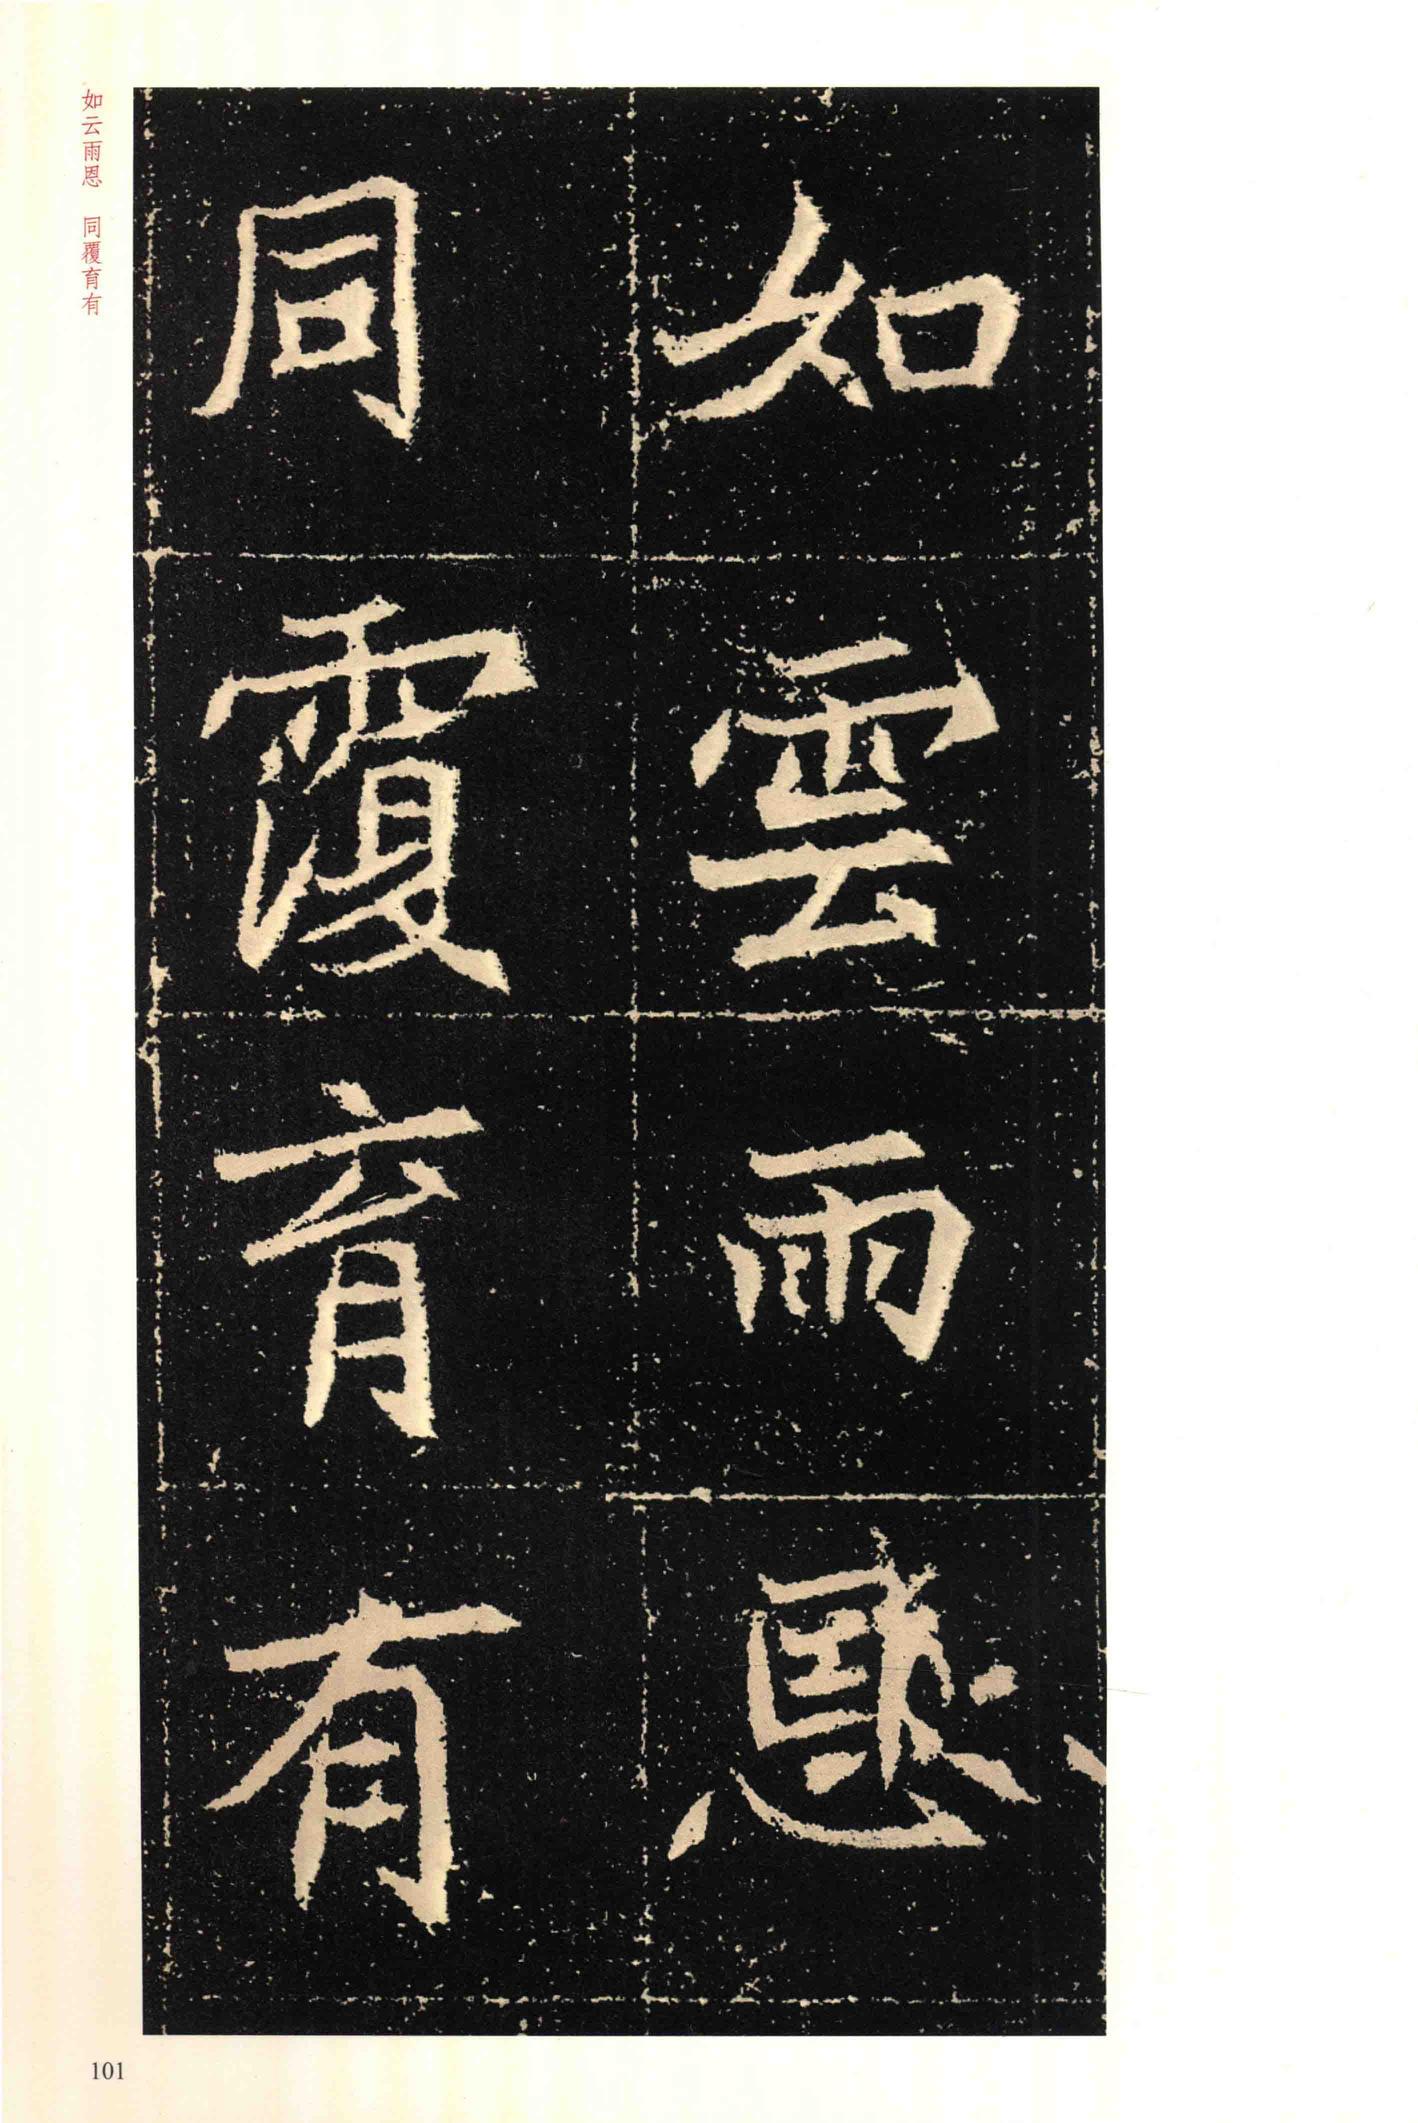 如雲雨恩
同覆育有
如云雨恩　同覆育有
101